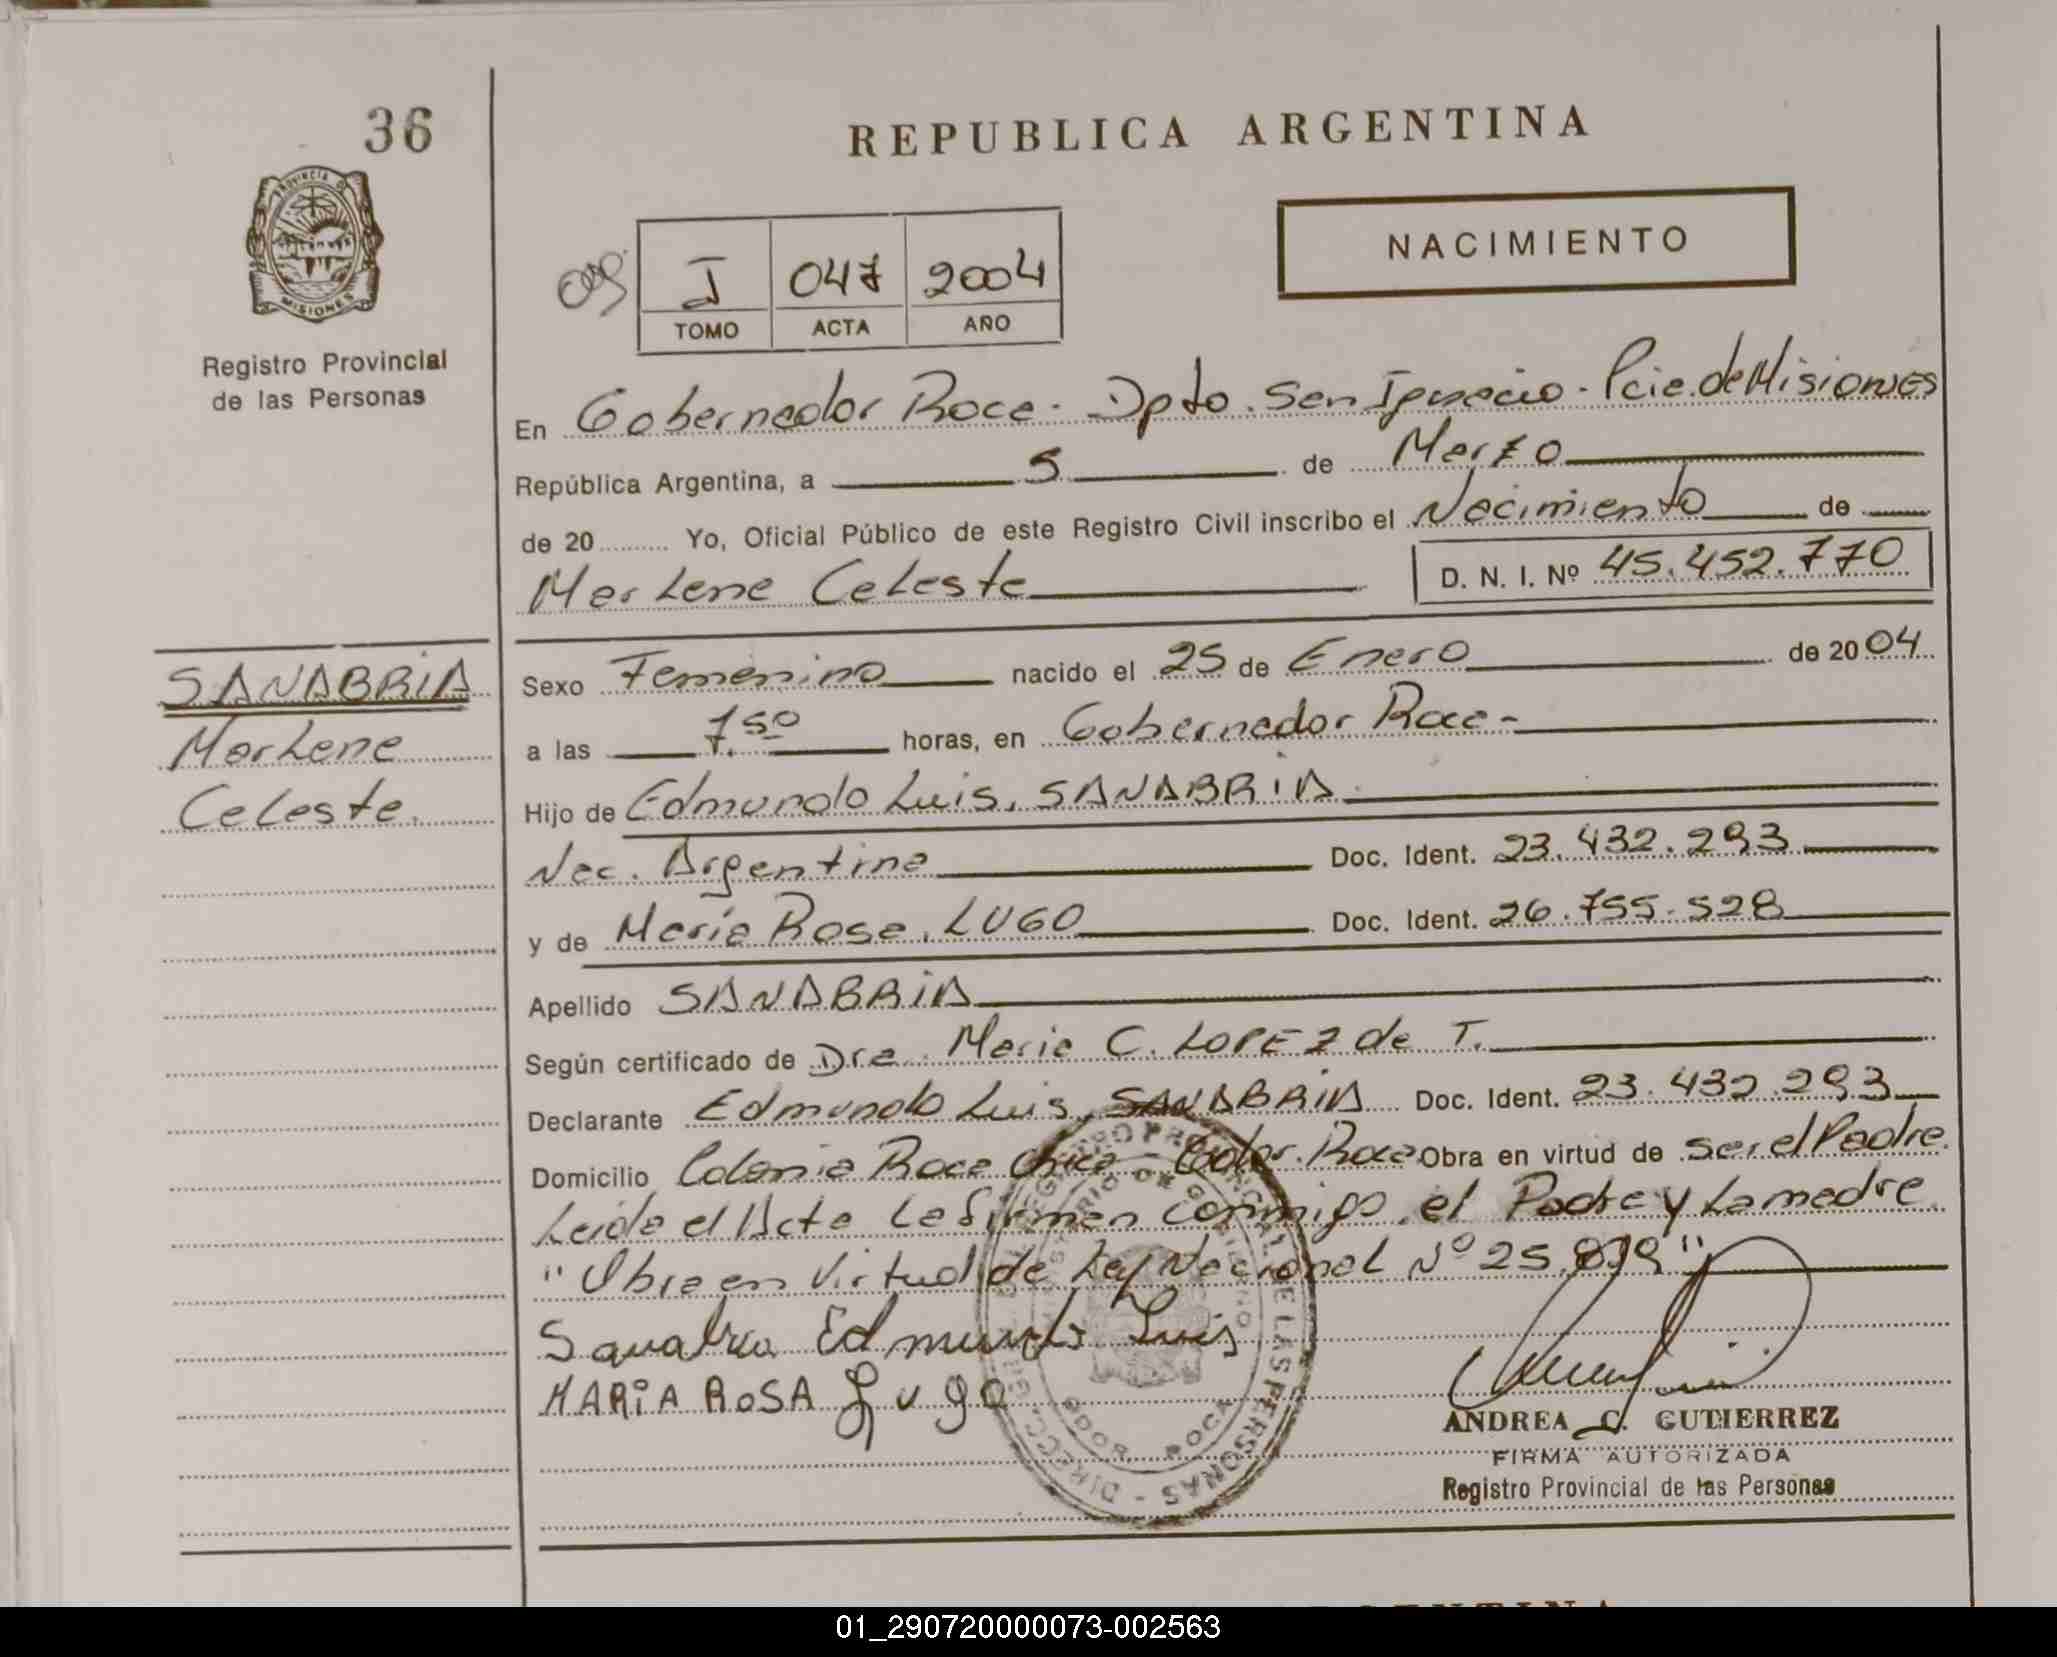 36
REPUBLICA ARGENTINA
PROVINCIA DE
MISIONES
Registro Provincial
de las Personas
NACIMIENTO
I 047 2004
TOMO ACTA AÑO
En Gobernador Roca - Dpto. San Ignacio - Pcia. de Misiones
República Argentina, a 5 de Marzo
de 20 Yo, Oficial Público de este Registro Civil inscribo el Nacimiento de
Marlene Celeste D. N. I. Nº 45.452.770
SANABRIA
Marlene
Celeste.
Sexo Femenino nacido el 25 de Enero de 2004
a las 7.50 horas, en Gobernador Roca-
Hijo de Edmundo Luis, SANABRIA
Nac. Argentina Doc. Ident. 23.432.293
y de María Rosa, LUGO Doc. Ident. 26.755.528
Apellido SANABRIA
Según certificado de Dra. Maria C. LOPEZ de T.
Declarante Edmundo Luis, SANABRIA Doc. Ident. 23.432.293
Domicilio Colonia Roca Chica - Gdor. Roca Obra en virtud de ser el Padre.
Leida el Acta la firman conmigo, el Padre y la madre.
"Obra en Virtud de Ley Nacional Nº 25.819"
Sanabria Edmundo Luis
MARiA ROSA Lugo
ANDREA C. GUTIERREZ
FIRMA AUTORIZADA
Registro Provincial de las Personas
DIRECC. DEL REGISTRO PROVINCIAL DE LAS PERSONAS -
MINISTERIO DE GOBIERNO
GDOR. ROCA
01_290720000073-002563